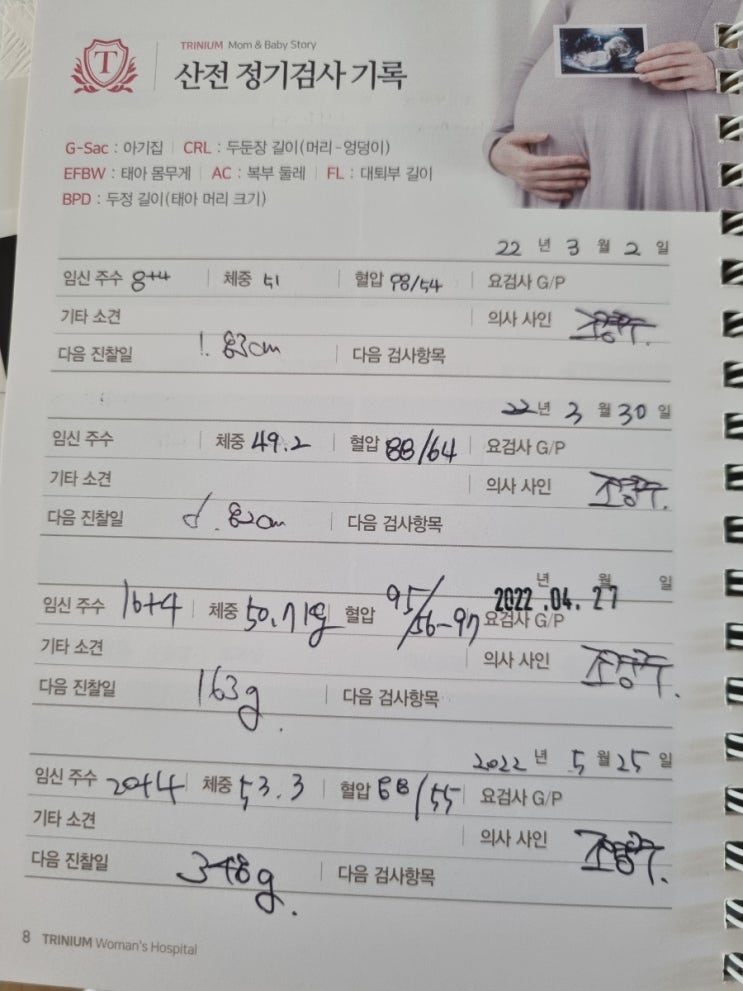 TRINIUM Mom & Baby Story
T 산전 정기검사 기록
G-Sac : 아기집 | CRL : 두둔장 길이(머리-엉덩이)
EFBW : 태아 몸무게 | AC : 복부 둘레 | FL : 대퇴부 길이
BPD : 두정 길이(태아 머리 크기)
22 년 3 월 2 일
임신 주수 8+4 | 체중 51 | 혈압 98/54 | 요검사 G/P
기타 소견 | 의사 사인
다음 진찰일 1.83cm | 다음 검사항목
22년 3 월 30 일
임신 주수 | 체중 49.2 | 혈압 88/64 | 요검사 G/P
기타 소견 | 의사 사인
다음 진찰일 .82cm | 다음 검사항목
년 월 일
2022.04.27
임신 주수 16+4 | 체중 50.71kg 혈압 95/56-97 요검사 G/P
기타 소견 | 의사 사인
다음 진찰일 163g. | 다음 검사항목
2022 년 5 월 25 일
임신 주수 20+4 체중 53.3 | 혈압 88/55 | 요검사 G/P
기타 소견 | 의사 사인
다음 진찰일 348g. | 다음 검사항목
8 TRINIUM Woman's Hospital